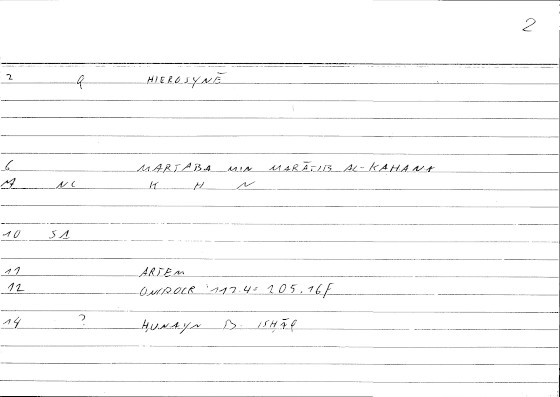 2
2 q HIEROSYNĒ
6 MARTABA MIN MARĀTIB AL-KAHANA
M NC K H N
10 SA
11 ARTEM
12 ONIROCR 117.4 = 205.16F
14 ? HUNAYN B. ISHĀQ